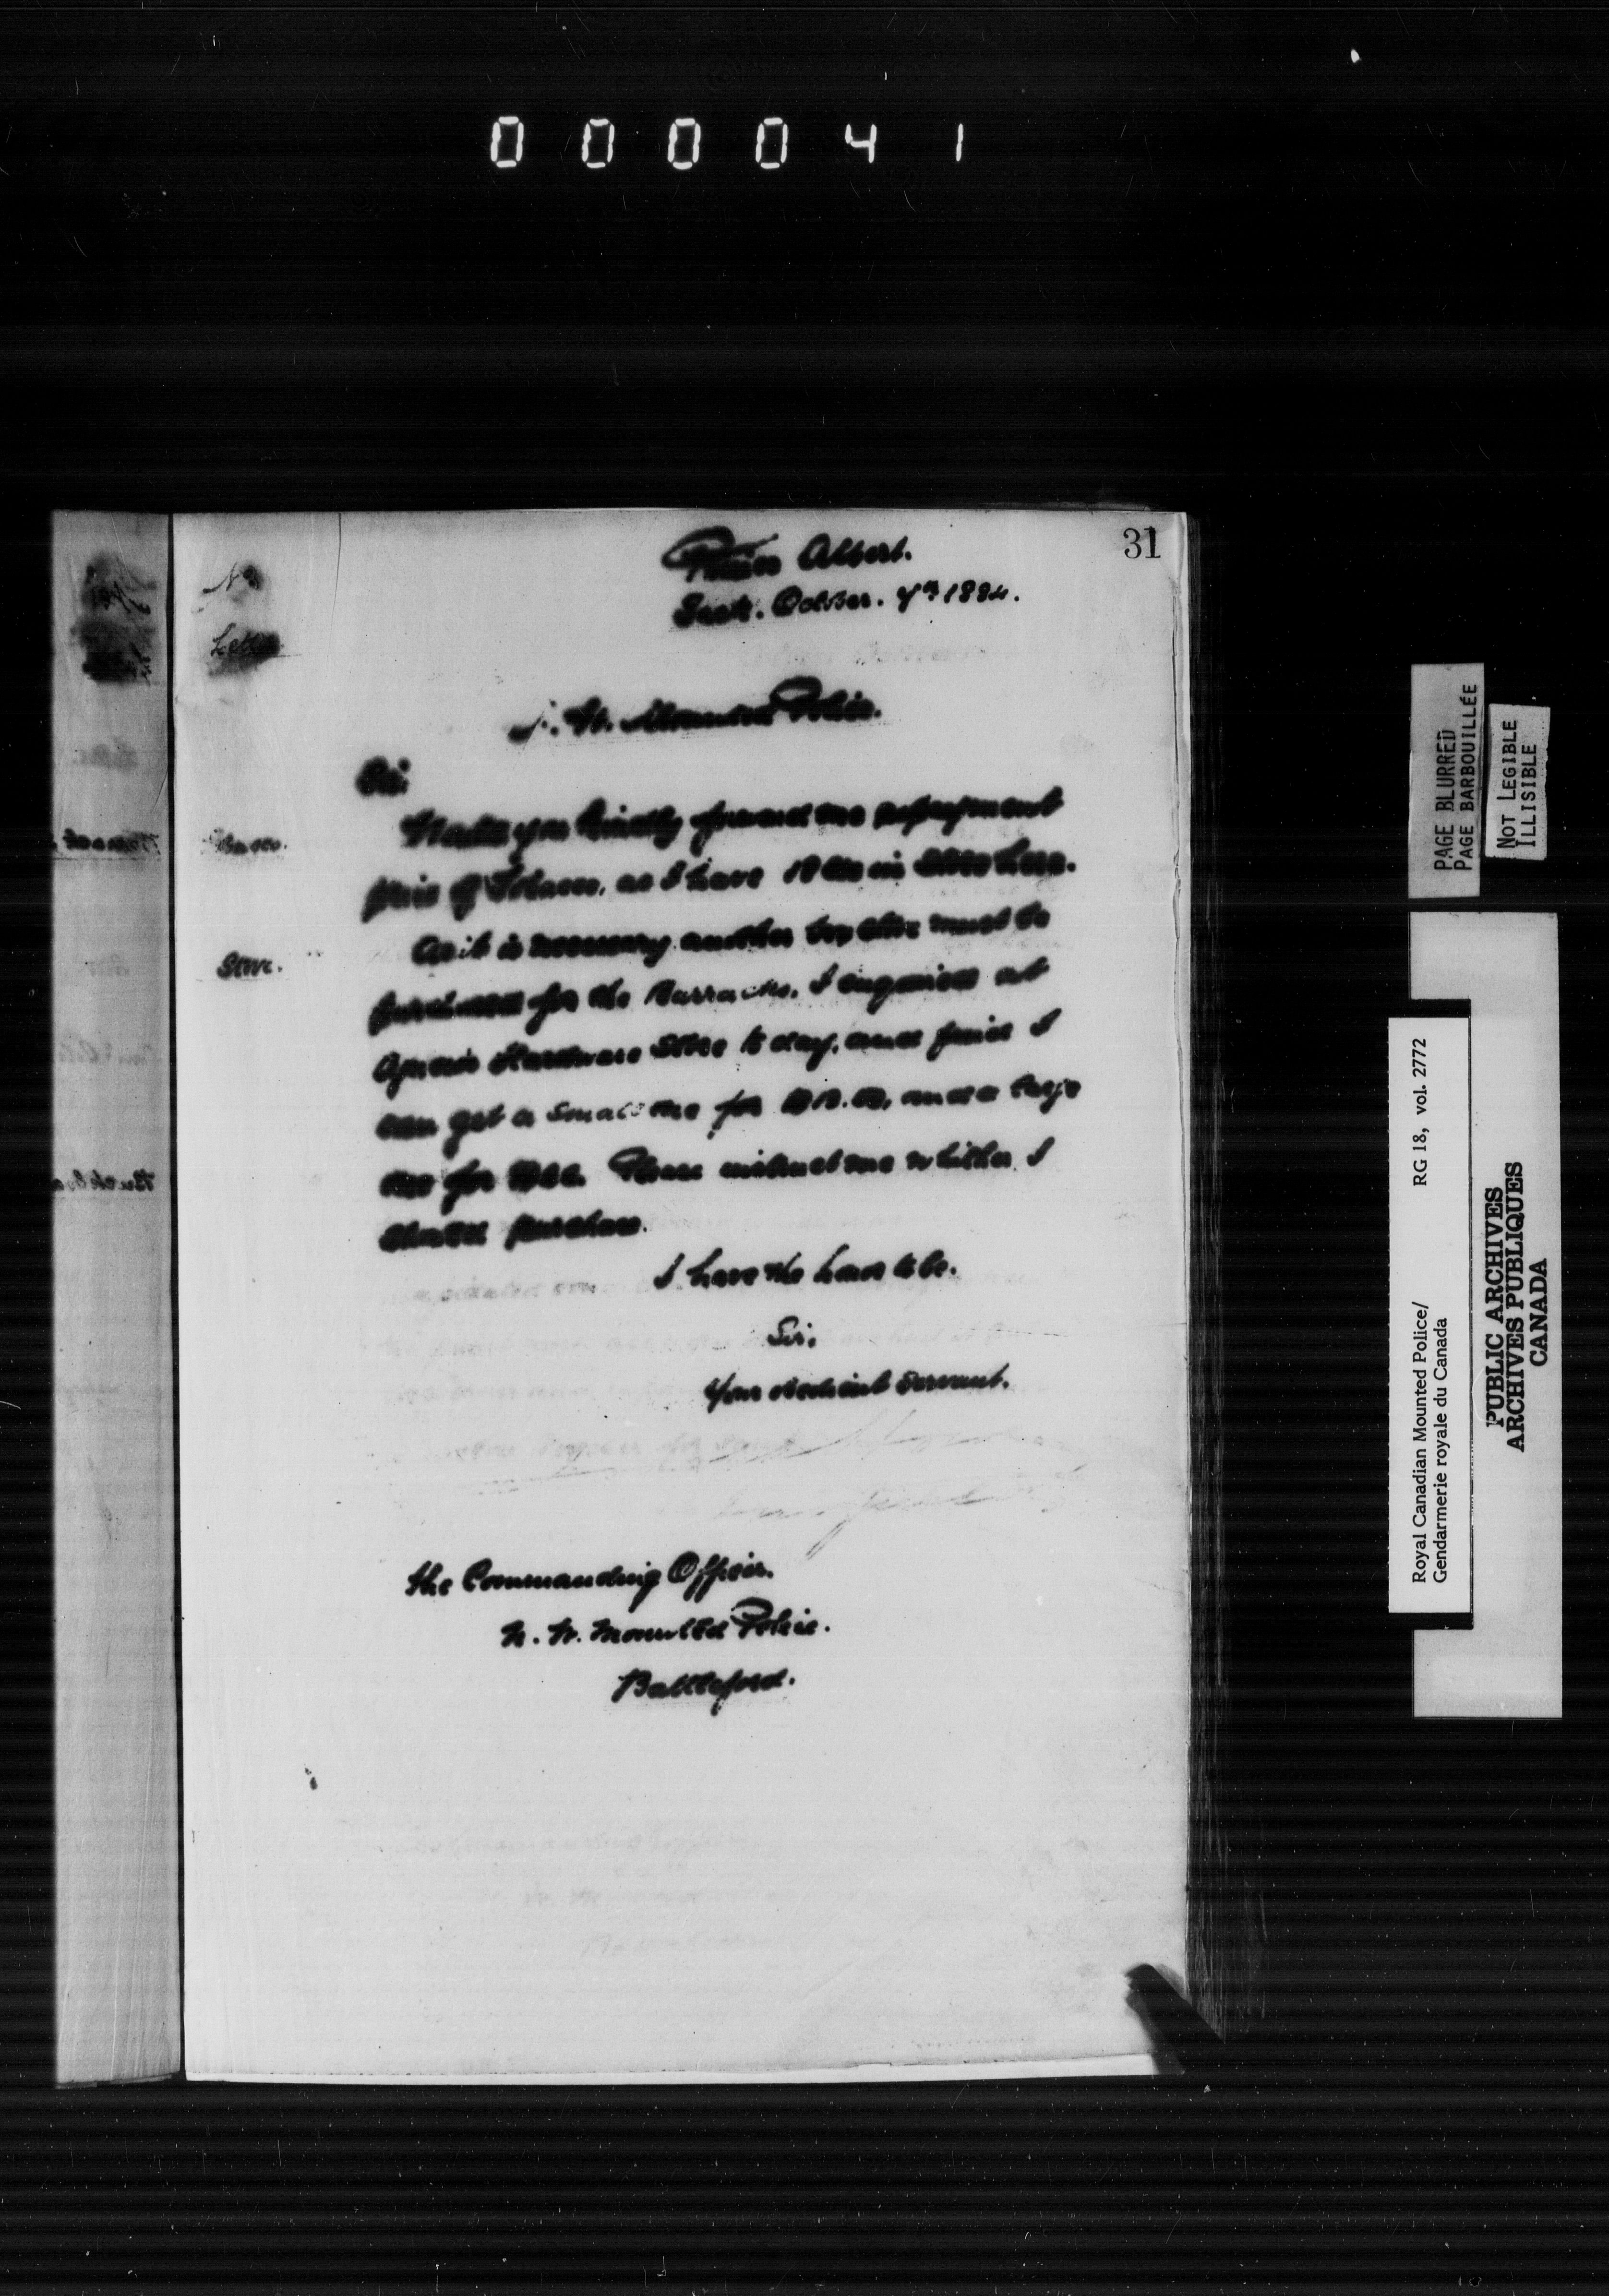 0 0 0 0 4 1
31
Prince Albert.
Sask. October. 7th 1884.
No
Letter
N. W. Mounted Police.
Sir:
Would you kindly forward me repayment
price of Tobacco, as I have 18 lbs in Store here.
As it is necessary another box stove must be
Stove.
purchased for the Barracks. I enquired at
Hardware Store to day, and find I
can get a small one for and a large
one for Please instruct me whether I
should purchase.
I have the honor to be.
Sir,
Your obedient Servant.
The Commanding Officer.
N. W. Mounted Police.
Battleford.
PAGE BLURRED
PAGE BARBOUILLÉE
NOT LEGIBLE
ILLISIBLE
Royal Canadian Mounted Police/ RG 18, vol. 2772
Gendarmerie royale du Canada
PUBLIC ARCHIVES
ARCHIVES PUBLIQUES
CANADA